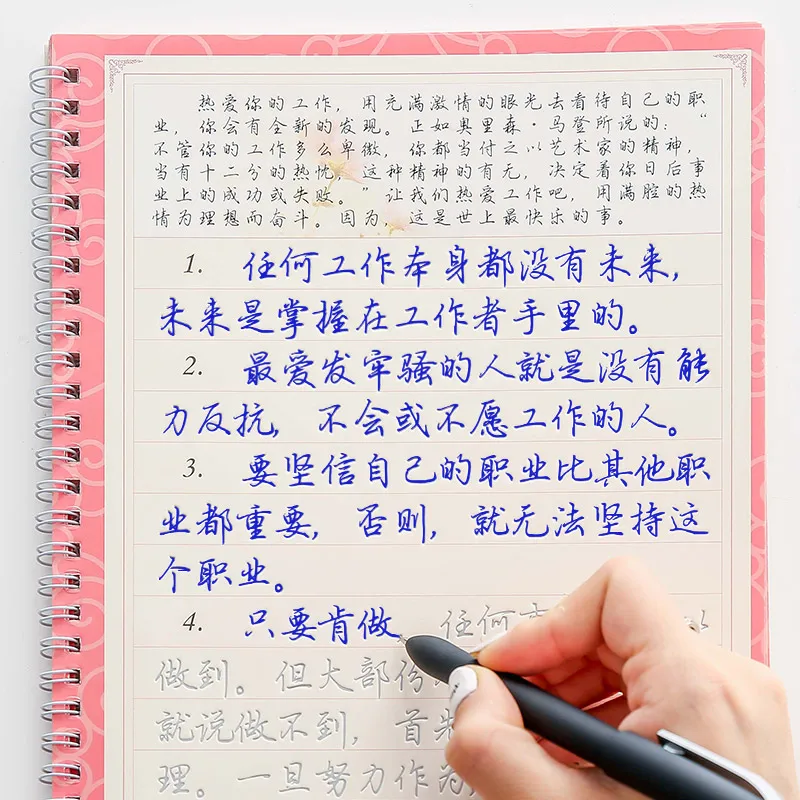 热爱你的工作，用充满激情的眼光去看待自己的职
业，你会有全新的发现。正如奥里森·马登所说的：“
不管你的工作多么卑微，你都当付之以艺术家的精神，
当有十二分的热忱，这种精神的有无，决定着你日后事
业上的成功或失败。”让我们热爱工作吧，用满腔的热
情为理想而奋斗。因为，这是世上最快乐的事。
1. 任何工作本身都没有未来，
未来是掌握在工作者手里的。
2. 最爱发牢骚的人就是没有能
力反抗，不会或不愿工作的人。
3. 要坚信自己的职业比其他职
业都重要，否则，就无法坚持这
个职业。
4. 只要肯做 任何
做到。但大部份
就说做不到，首先
理。一旦努力作为